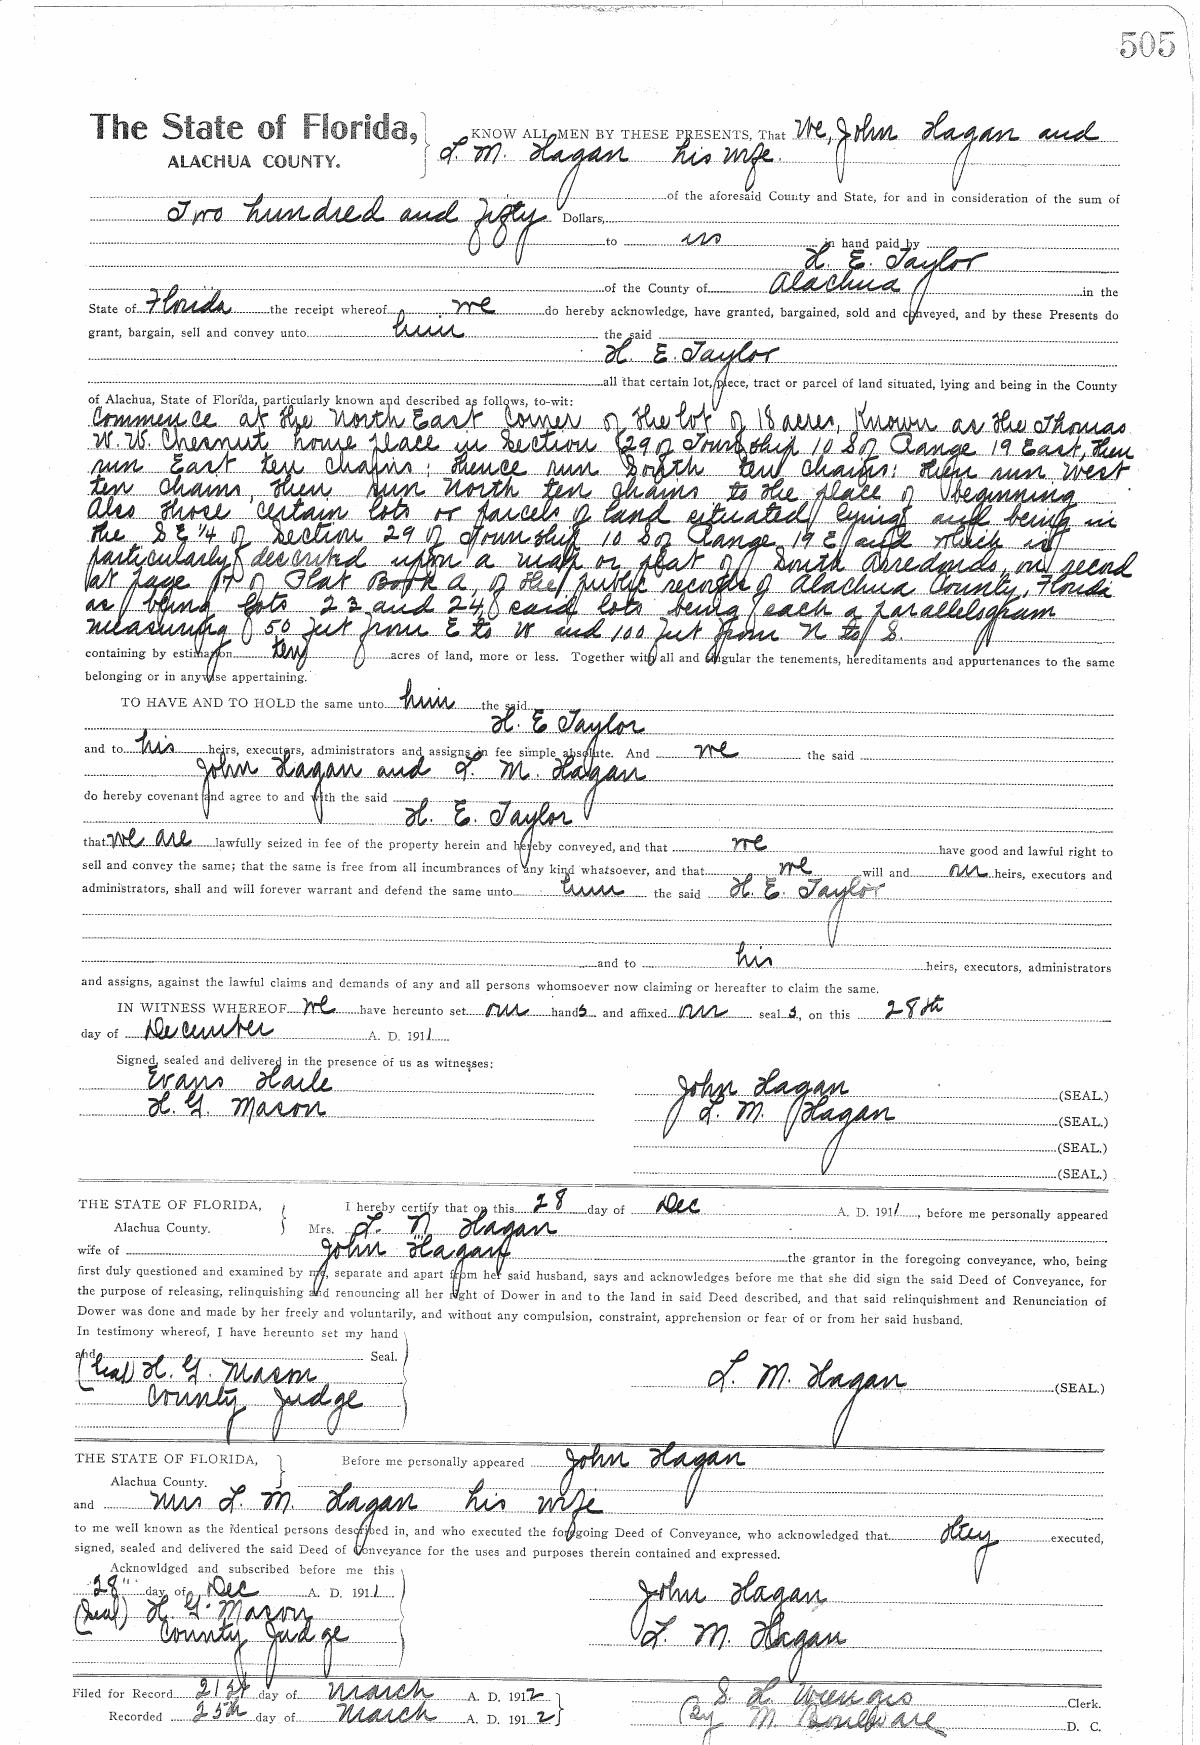 505
The State of Florida,
ALACHUA COUNTY.
KNOW ALL MEN BY THESE PRESENTS, That We, John Hagan and
L. M. Hagan his wife.
of the aforesaid County and State, for and in consideration of the sum of
Two hundred and fifty Dollars,
to us in hand paid by
H. E. Taylor
of the County of Alachua in the
State of Florida the receipt whereof we do hereby acknowledge, have granted, bargained, sold and conveyed, and by these Presents do
grant, bargain, sell and convey unto him the said
H. E. Taylor
all that certain lot, piece, tract or parcel of land situated, lying and being in the County
of Alachua, State of Florida, particularly known and described as follows, to-wit:
Commence at the North East Corner of the lot of 18 acres, Known as the Thomas
W. W. Chesnut home place in Section 29 of Township 10 S of Range 19 East, then
run East ten chains; thence run South ten chains; then run West
ten chains, then run North ten chains to the place of beginning
Also those certain lots or parcels of land situated lying and being in
the S E 1/4 of Section 29 of Township 10 S of Range 19 E and which is
particularly described upon a map or plat of South Arredondo, on record
at page 17 of Plat Book A, of the public records of Alachua County, Florida
as being lots 23 and 24, said lots being each a parallelogram
measuring 50 feet from E to W and 100 feet from N to S.
containing by estimation ten acres of land, more or less. Together with all and singular the tenements, hereditaments and appurtenances to the same
belonging or in anywise appertaining.
TO HAVE AND TO HOLD the same unto him the said
H. E Taylor
and to his heirs, executors, administrators and assigns in fee simple absolute. And we the said
John Hagan and L. M. Hagan
do hereby covenant and agree to and with the said
H. E. Taylor
that we are lawfully seized in fee of the property herein and hereby conveyed, and that we have good and lawful right to
sell and convey the same; that the same is free from all incumbrances of any kind whatsoever, and that we will and our heirs, executors and
administrators, shall and will forever warrant and defend the same unto him the said H. E. Taylor
and to his heirs, executors, administrators
and assigns, against the lawful claims and demands of any and all persons whomsoever now claiming or hereafter to claim the same.
IN WITNESS WHEREOF we have hereunto set our hands and affixed our seal s, on this 28th
day of December A. D. 1911
Signed, sealed and delivered in the presence of us as witnesses:
Evans Haile
H. G. Mason
John Hagan (SEAL.)
L. M. Hagan (SEAL.)
(SEAL.)
(SEAL.)
THE STATE OF FLORIDA,
Alachua County.
I hereby certify that on this 28 day of Dec A. D. 1911, before me personally appeared
Mrs. L. M Hagan
wife of John Hagan the grantor in the foregoing conveyance, who, being
first duly questioned and examined by me, separate and apart from her said husband, says and acknowledges before me that she did sign the said Deed of Conveyance, for
the purpose of releasing, relinquishing and renouncing all her right of Dower in and to the land in said Deed described, and that said relinquishment and Renunciation of
Dower was done and made by her freely and voluntarily, and without any compulsion, constraint, apprehension or fear of or from her said husband.
In testimony whereof, I have hereunto set my hand
and Seal.
(Seal) H. G. Mason
County Judge
L. M. Hagan (SEAL.)
THE STATE OF FLORIDA,
Alachua County.
Before me personally appeared John Hagan
and Mrs L. M. Hagan his wife
to me well known as the identical persons described in, and who executed the foregoing Deed of Conveyance, who acknowledged that they executed,
signed, sealed and delivered the said Deed of Conveyance for the uses and purposes therein contained and expressed.
Acknowldged and subscribed before me this
28" day of Dec A. D. 1911
(Seal) H. G. Mason
County Judge
John Hagan
L. M. Hagan
Filed for Record 21st day of March A. D. 1912
Recorded 25th day of March A. D. 1912
S. H. Wienges Clerk.
By M. Bouleware D. C.